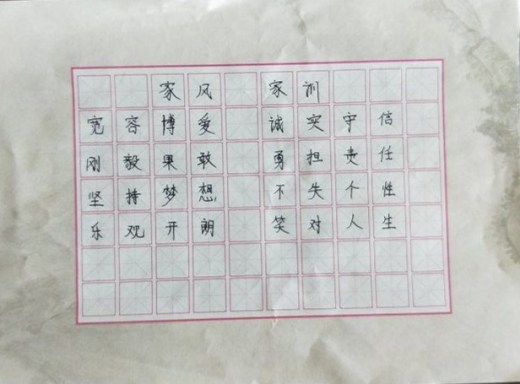 家风 家训
宽容博爱 诚实守信
刚毅果敢 勇担责任
坚持梦想 不失个性
乐观开朗 笑对人生